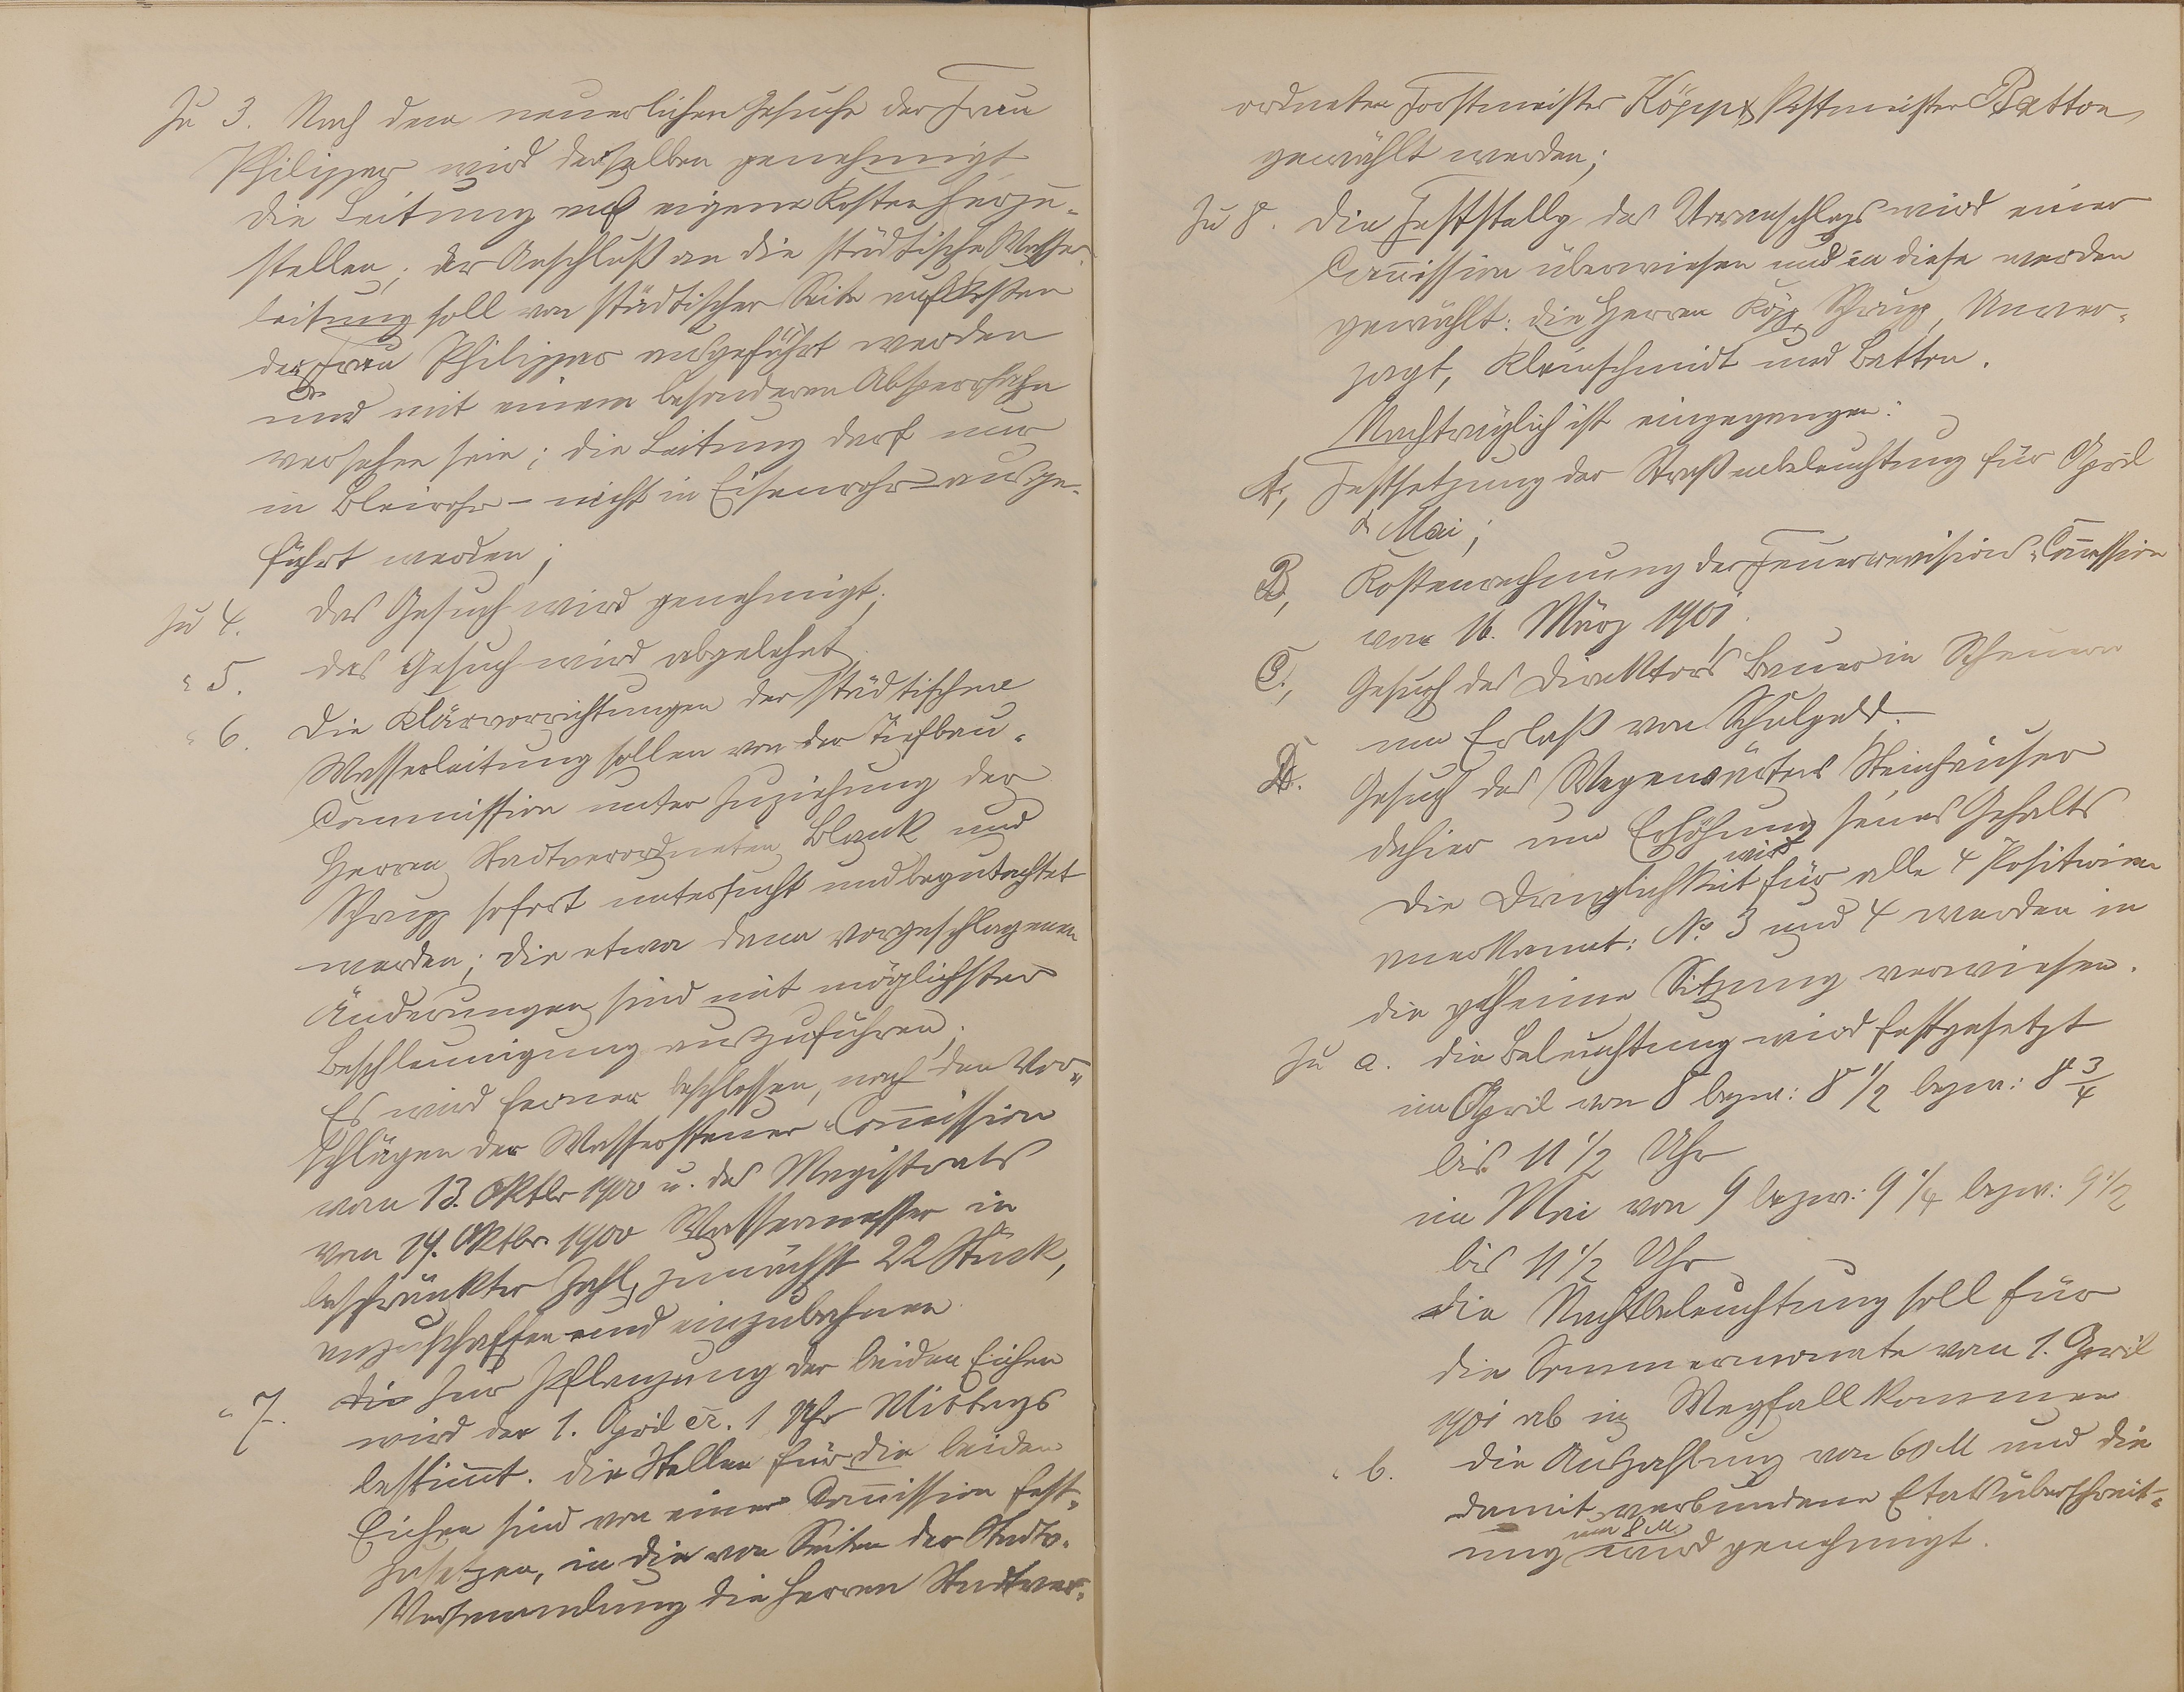 Zu 3. Nach dem neuerlichen Gesuche der Frau
Philippar wird derselben genehmigt
die Leitung auf eigene Kosten herzu-
stellen; der Anschluß an die städtische Wasser-
leitung soll von städtischer Seite auf Kosten
der Frau Philippar ausgeführt werden
und mit einem besonderen Absperrhahn
versehen sein; die Leitung darf nur
in Bleirohr - nicht in Eisenrohr - ausge-
führt werden;
Zu 4. das Gesuch wird genehmigt;
" 5. das Gesuch wird abgelehnt
" 6. Die Klärvorrichtungen der städtischen
Wasserleitung sollen von der Tiefbau-
Commission unter Zuziehung der
Herren Stadtverordneten Blank und
Schrupp sofort untersucht und begutachtet
werden; die etwa dann vorgeschlagenen
Änderungen sind mit möglichster
Beschleunigung auszuführen;
Es wird ferner beschlossen, nach den Vor-
schlägen der Wassersteuer-Com̅ission
vom 13. Oktbr 1900 u. des Magistrats
vom 19. Oktbr 1900 Wassermesser in
beschränkter Zahl, zunächst 22 Stück,
anzuschaffen und
" 7. Die zur Pflanzung der beiden Eichen
wird der 1. April cr. 1 Uhr Mittags
bestim̅t. Die Stellen für die beiden
Eichen sind von einer Com̅ission fest-
zusetzen, in die von Seiten der Stadtv.
Versammlung die Herren Stadtver-
ordneten Forstmeister Köpp & Postmeister Batton
gewählt werden;
Zu 8. Die Feststellg des Voranschlags wird einer
Com̅ission überwiesen und in diese werden
gewählt: die Herren Köpp, Schrupp, Unver-
zagt, Kleinschmidt und Batton.
Nachträglich ist eingegangen:
A, Festsetzung der Straßenbeleuchtung für April
& Mai;
B, Kostenrechnung der Feuerrevisions-Com̅ission
vom 16. März 1901.
C, Gesuch des Direktors Bauer in Scheuern
um Erlaß von Schulgeld.
D. Gesuch des Wegewärters Steinhäuser
dahier um Erhöhung seines Gehalts
Die Dringlichkeit wird für alle 4 Positionen
anerkannt: No. 3 und 4 werden in
die geheime Sitzung verwiesen.
Zu a. die Beleuchtung wird festgesetzt
im April von 8 bezw: 8 1/2 bezw: 8 3/4
bis 11 1/2 Uhr
im Mai von 9 bezw: 9 1/4 bezw: 9 1/2
bis 11 1/2 Uhr
die Nachtbeleuchtung soll für
die Sommermonate vom 1. April
1901 ab in Wegfall kommen
" b. die Auszahlung von 60 M und die
damit verbundene Etatsüberschreit-
ung um 8 M wird genehmigt.